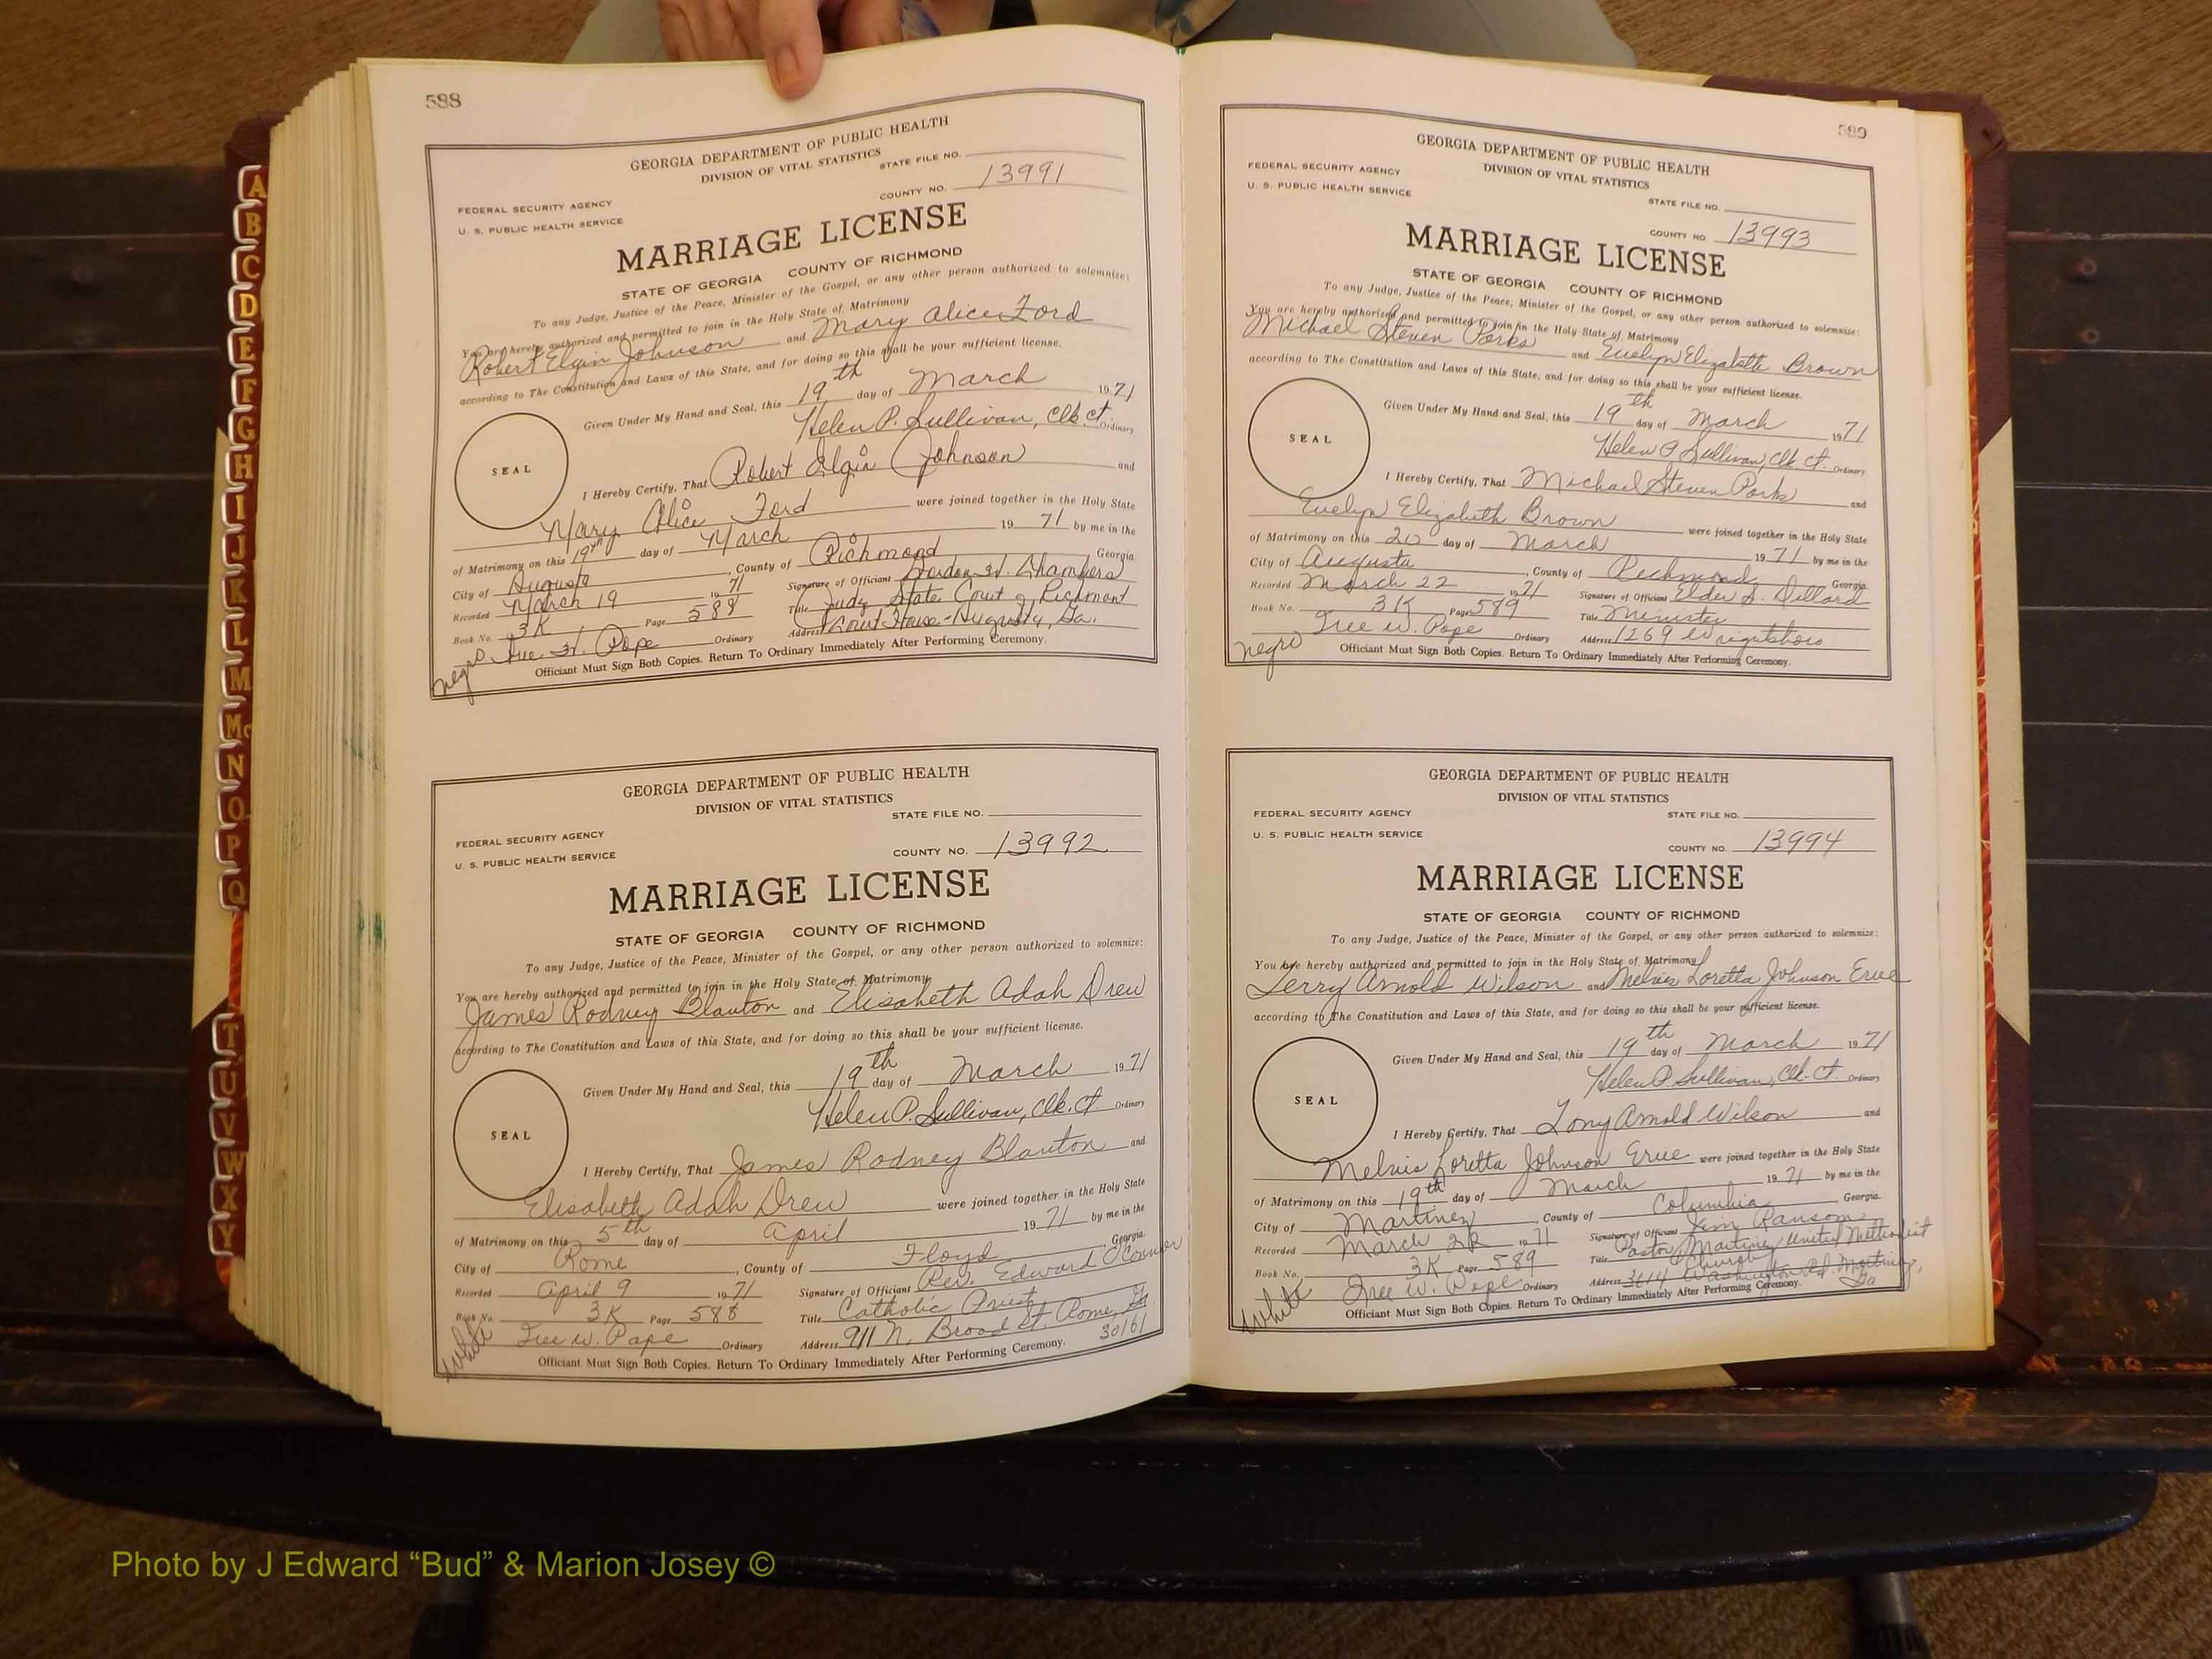 588
GEORGIA DEPARTMENT OF PUBLIC HEALTH
DIVISION OF VITAL STATISTICS
STATE FILE NO.
FEDERAL SECURITY AGENCY
U. S. PUBLIC HEALTH SERVICE
COUNTY NO. 13991
MARRIAGE LICENSE
STATE OF GEORGIA COUNTY OF RICHMOND
To any Judge, Justice of the Peace, Minister of the Gospel, or any other person authorized to solemnize:
You are hereby authorized and permitted to join in the Holy State of Matrimony
Robert Elgin Johnson and Mary Alice Ford
according to The Constitution and Laws of this State, and for doing so this shall be your sufficient license.
Given Under My Hand and Seal, this 19th day of March 1971
Helen P. Sullivan, Clk. Ct. Ordinary
SEAL
I Hereby Certify, That Robert Elgin Johnson and
Mary Alice Ford were joined together in the Holy State
of Matrimony on this 19th day of March 1971 by me in the
City of Augusta, County of Richmond Georgia.
Recorded March 19 1971 Signature of Officiant Gordon W. Chambers
Book No. 3K Page 588 Title Judge State Court of Richmont
Ordinary Address Court House-Augusta, Ga.
negro
Officiant Must Sign Both Copies. Return To Ordinary Immediately After Performing Ceremony.
GEORGIA DEPARTMENT OF PUBLIC HEALTH
DIVISION OF VITAL STATISTICS
STATE FILE NO.
FEDERAL SECURITY AGENCY
U. S. PUBLIC HEALTH SERVICE
COUNTY NO. 13992
MARRIAGE LICENSE
STATE OF GEORGIA COUNTY OF RICHMOND
To any Judge, Justice of the Peace, Minister of the Gospel, or any other person authorized to solemnize:
You are hereby authorized and permitted to join in the Holy State of Matrimony
James Rodney Blanton and Elisabeth Adah Drew
according to The Constitution and Laws of this State, and for doing so this shall be your sufficient license.
Given Under My Hand and Seal, this 19th day of March 1971
Helen P. Sullivan, Clk. Ct. Ordinary
SEAL
I Hereby Certify, That James Rodney Blanton and
Elisabeth Adah Drew were joined together in the Holy State
of Matrimony on this 5th day of April 1971 by me in the
City of Rome, County of Floyd, Georgia.
Recorded April 9 1971 Signature of Officiant Rev. Edward O'Connor
Book No. 3K Page 588 Title Catholic Priest
Ordinary Address 911 N. Broad St. Rome, Ga 30161
White
Officiant Must Sign Both Copies. Return To Ordinary Immediately After Performing Ceremony.
589
GEORGIA DEPARTMENT OF PUBLIC HEALTH
DIVISION OF VITAL STATISTICS
FEDERAL SECURITY AGENCY
U. S. PUBLIC HEALTH SERVICE
STATE FILE NO.
COUNTY NO. 13993
MARRIAGE LICENSE
STATE OF GEORGIA COUNTY OF RICHMOND
To any Judge, Justice of the Peace, Minister of the Gospel, or any other person authorized to solemnize:
You are hereby authorized and permitted to join in the Holy State of Matrimony
Michael Steven Parks and Evelyn Elizabeth Brown
according to The Constitution and Laws of this State, and for doing so this shall be your sufficient license.
Given Under My Hand and Seal, this 19th day of March 1971
Helen P. Sullivan, Clk. Ct. Ordinary
SEAL
I Hereby Certify, That Michael Steven Parks and
Evelyn Elizabeth Brown were joined together in the Holy State
of Matrimony on this 20 day of March 1971 by me in the
City of Augusta, County of Richmond Georgia.
Recorded March 22 1971 Signature of Officiant Elder S. Dillard
Book No. 3K Page 589 Title Minister
Ordinary Address 1269 Wrightsboro
negro
Officiant Must Sign Both Copies. Return To Ordinary Immediately After Performing Ceremony.
GEORGIA DEPARTMENT OF PUBLIC HEALTH
DIVISION OF VITAL STATISTICS
FEDERAL SECURITY AGENCY
U. S. PUBLIC HEALTH SERVICE
STATE FILE NO.
COUNTY NO. 13994
MARRIAGE LICENSE
STATE OF GEORGIA COUNTY OF RICHMOND
To any Judge, Justice of the Peace, Minister of the Gospel, or any other person authorized to solemnize:
You are hereby authorized and permitted to join in the Holy State of Matrimony
Arnold Wilson and Loretta Johnson
according to The Constitution and Laws of this State, and for doing so this shall be your sufficient license.
Given Under My Hand and Seal, this 19th day of March 1971
Helen P. Sullivan, Clk. Ct. Ordinary
SEAL
I Hereby Certify, That Arnold Wilson and
Loretta Johnson were joined together in the Holy State
of Matrimony on this 19th day of March 1971 by me in the
City of Martinez, County of Columbia, Georgia.
Recorded March 1971 Signature of Officiant Jim Ransom
Book No. 3K Page 589 Title Pastor Martinez United Methodist Church
Ordinary Address 3614 Washington Rd. Martinez, Ga
White
Officiant Must Sign Both Copies. Return To Ordinary Immediately After Performing Ceremony.
A
B
C
D
E
F
G
H
I
J
K
L
M
Mc
N
O
P
Q
T
U
V
W
X
Y
Photo by J Edward “Bud” & Marion Josey ©